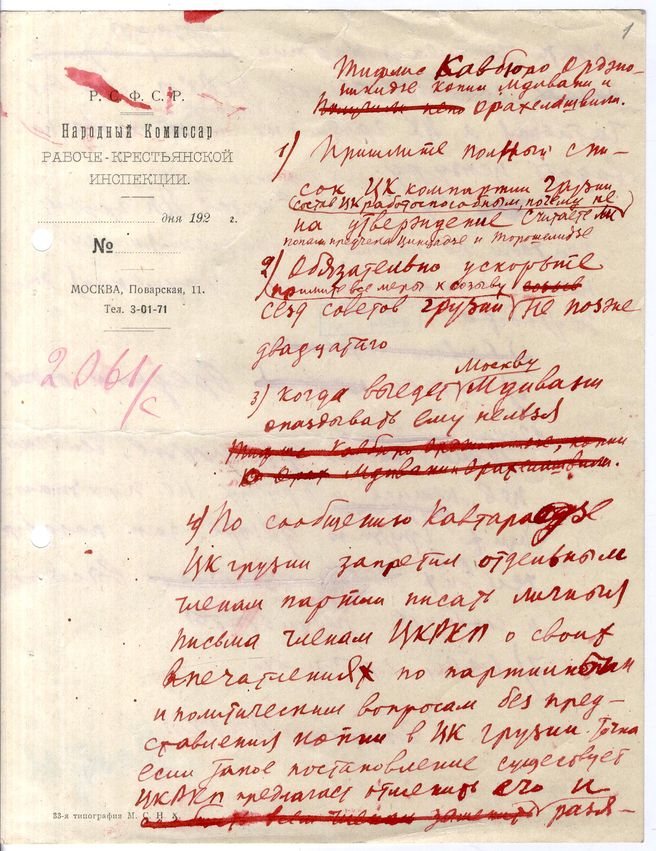 1
Р. С. Ф. С. Р.
Народный Комиссар
РАБОЧЕ-КРЕСТЬЯНСКОЙ
ИНСПЕКЦИИ.
дня 192 г.
№
МОСКВА, Поварская, 11.
Тел. 3-01-71
2061/с
Тифлис Кавбюро Орджо-
никидзе копии Мдивани и
Орахелашвили.
1) Пришлите полный спи-
сок ЦК компартии Грузии
состав ЦК работоспособным, почему не
на утверждение считаете ли
попали предчека Цинцадзе и Торошелидзе
2) Обязательно ускорьте
примите все меры к созыву созыв
сезд советов Грузии не позже
двадцатого
Москву
3) когда выедет Мдивани
опаздывать ему нельзя
Тифлис Кавбюро Орджоникидзе, копии
Мдивани Орахелашвили.
4) По сообщению Кавтарадзе
ЦК Грузии запретил отдельным
членам партии писать личныя
письма членам ЦКРКП о своих
впечатлениях по партийным
и политическим вопросам без пред-
ставления копии в ЦК Грузии. Точка
если такое постановление существует
ЦКРКП предлагает отменить его и
разя-
33-я типография М. С. Н. Х.